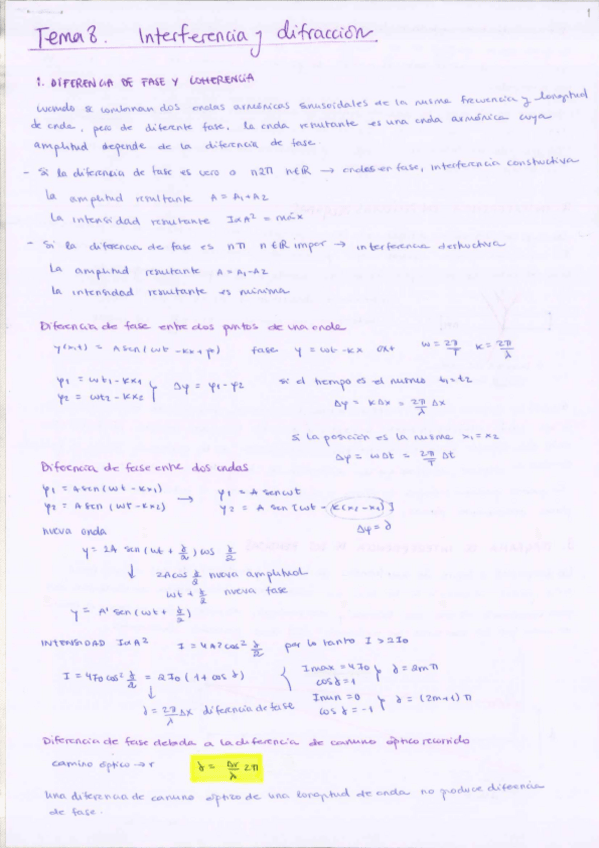 1
Tema 8. Interferencia y difracción
1. DIFERENCIA DE FASE Y COHERENCIA
Cuando se combinan dos ondas armónicas sinusoidales de la misma frecuencia y longitud
de onda, pero de diferente fase, la onda resultante es una onda armónica cuya
amplitud depende de la diferencia de fase.
- Si la diferencia de fase es cero o n2π n∈ℝ → ondas en fase, interferencia constructiva
La amplitud resultante A = A₁+A₂
La intensidad resultante IαA² = máx
- Si la diferencia de fase es nπ n∈ℝ impar → interferencia destructiva
La amplitud resultante A = A₁-A₂
La intensidad resultante es mínima
Diferencia de fase entre dos puntos de una onda
y(x,t) = A sen(wt - kx + φ) fase φ = wt - kx w = 2π/T k = 2π/λ
φ₁ = wt₁ - kx₁
φ₂ = wt₂ - kx₂ Δφ = φ₁ - φ₂ si el tiempo es el mismo t₁=t₂
Δφ = kΔx = 2π/λ Δx
si la posición es la misma x₁=x₂
Δφ = wΔt = 2π/T Δt
Diferencia de fase entre dos ondas
y₁ = A sen(wt - kx₁) → y₁ = A sen wt
y₂ = A sen(wt - kx₂) y₂ = A sen[wt - k(x₂-x₁)]
Δφ = δ
nueva onda
y = 2A sen(wt + δ/2) cos δ/2
↓ 2A cos δ/2 nueva amplitud
wt + δ/2 nueva fase
y = A' sen(wt + δ/2)
INTENSIDAD IαA² I = 4A² cos² δ/2 por lo tanto I > 2I₀
I = 4I₀ cos² δ/2 = 2I₀(1 + cos δ) Imax = 4I₀ cos δ = 1 } δ = 2mπ
↓ δ = 2π/λ Δx diferencia de fase Imin = 0 cos δ = -1 } δ = (2m+1)π
Diferencia de fase debida a la diferencia de camino óptico recorrido
camino óptico → r δ = Δr/λ 2π
Una diferencia de camino óptico de una longitud de onda no produce diferencia
de fase.